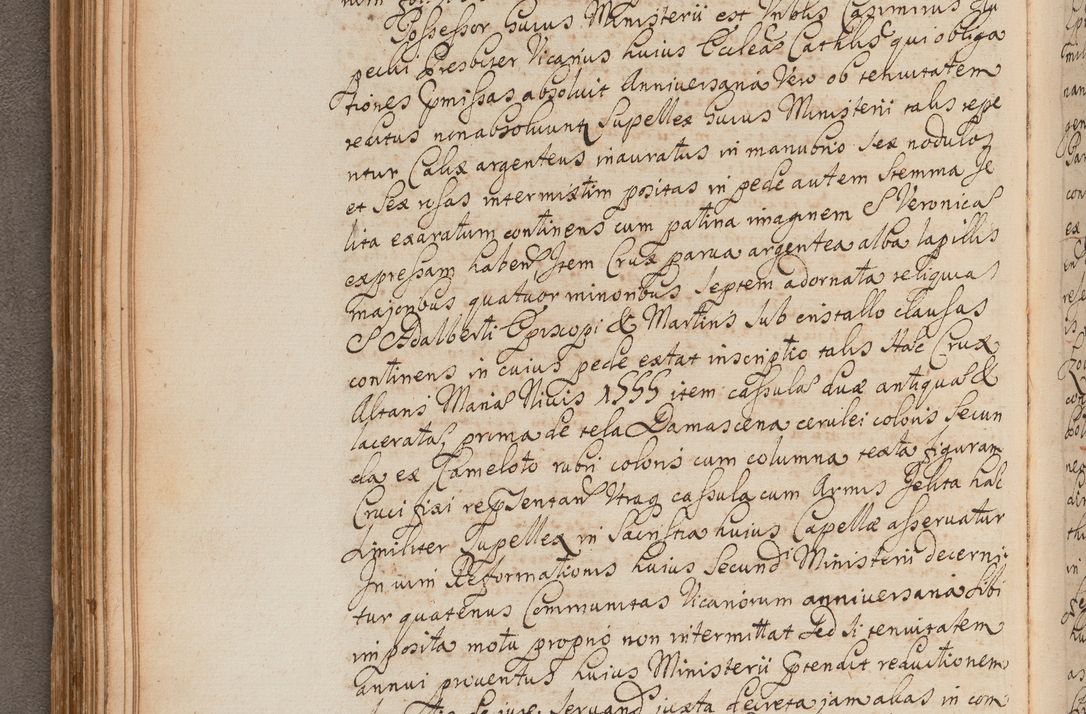 Possessor huius Ministerii est Nobilis Casimirus
pecki Presbiter Vicarius huius Eccleae Cathlis qui obliga
tiones pmissas absoluit Anniversaria Vero ob tenuitatem
reditus non absoluunt Supellex huius Ministerii talis repe
ritur Calix argenteus inauratus in manubrio sex nodulos
et sex rosas intermixtim positas in pede autem stemma Je
lita exaratum continens cum patina imaginem S Veronicae
expressam haben Item Crux parva argentea alba lapillis
majoribus quatuor minoribus septem adornata reliquias
S Adalberti Episcopi & Martini sub cristallo clausas
continens in cuius pede extat inscriptio talis Haec Crux
Altaris Mariae Nivis 1555 item casulae duae antiquae &
laceratae, prima de tela Damascena cerulei coloris secun
da ex Kameloto rubri coloris cum columna texta figuram
Crucifixi repsentan Utraq casula cum Armis Jelita hac
similiter Supellex in Sacristia huius Capellae asservatur
In vim Reformationis huius Secundi Ministerii decerni
tur quatenus Communitas Vicariorum anniversaria sibi
imposita motu proprio non intermittat sed si tenuitatem
annui proventus huius Ministerii ptendit reductionem
se iure servand iuxta decreta jam alias in com